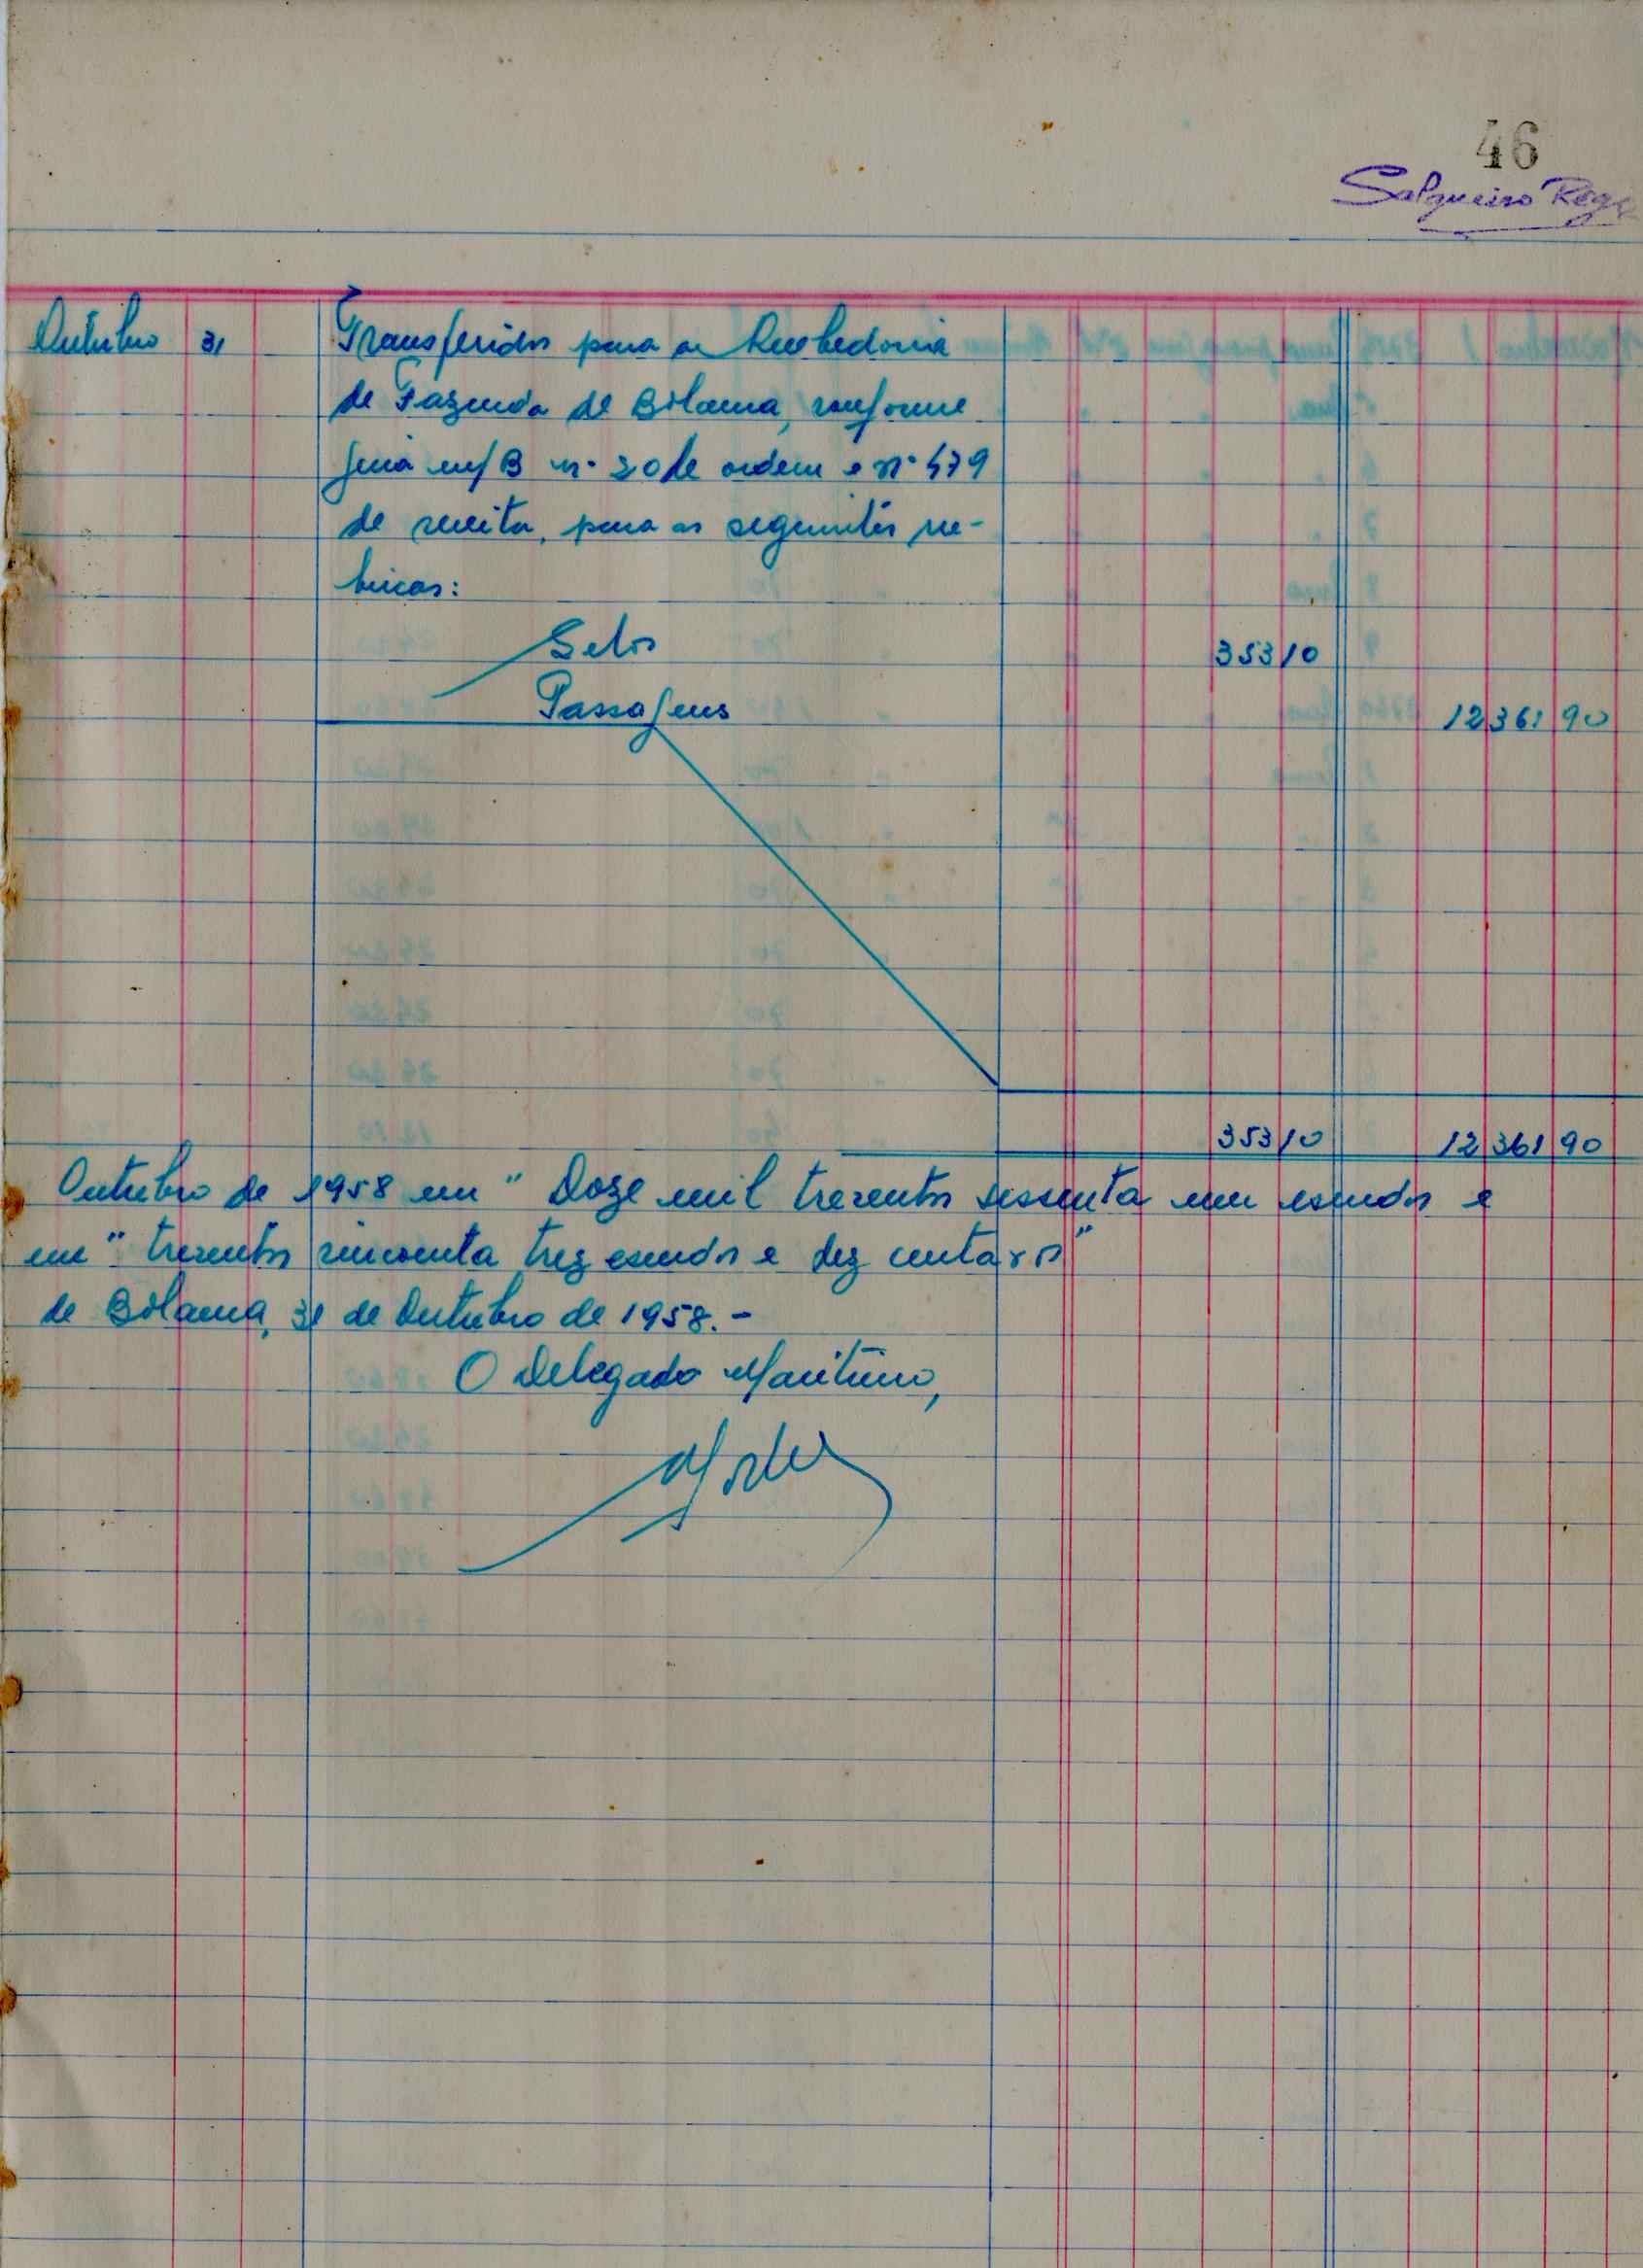 46
Salgueiro Rego
Outubro 31 Transferidos para a Recebedoria
de Fazenda de Bolama, conforme
guia m/B nº 20 de ordem e nº 479
de receita, para as seguintes ru-
bricas:
Selos 353 10
Passagens 12 361 90
353 10 12 361 90
Outubro de 1958 em " Doze mil trezentos sessenta um escudos e
em " trezentos cincoenta trez escudos e dez centavos"
de Bolama, 31 de Outubro de 1958.-
O Delegado Maritimo,